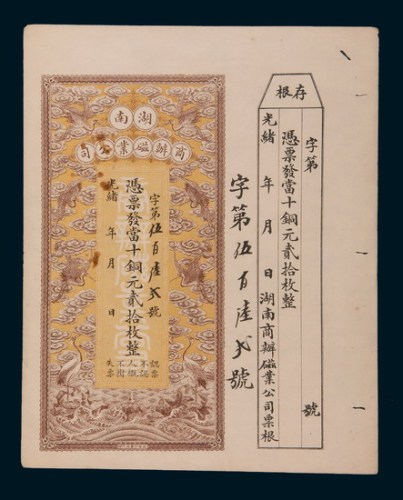 湖南
商辦磁業公司
字第伍百陸弍號
憑票發當十銅元貳拾枚整
光緒 年 月 日
認票不認
人概不掛
失票
字第伍百陸弍號
存根
字第 號
憑票發當十銅元貳拾枚整
光緒 年 月 日 湖南商辦磁業公司票根